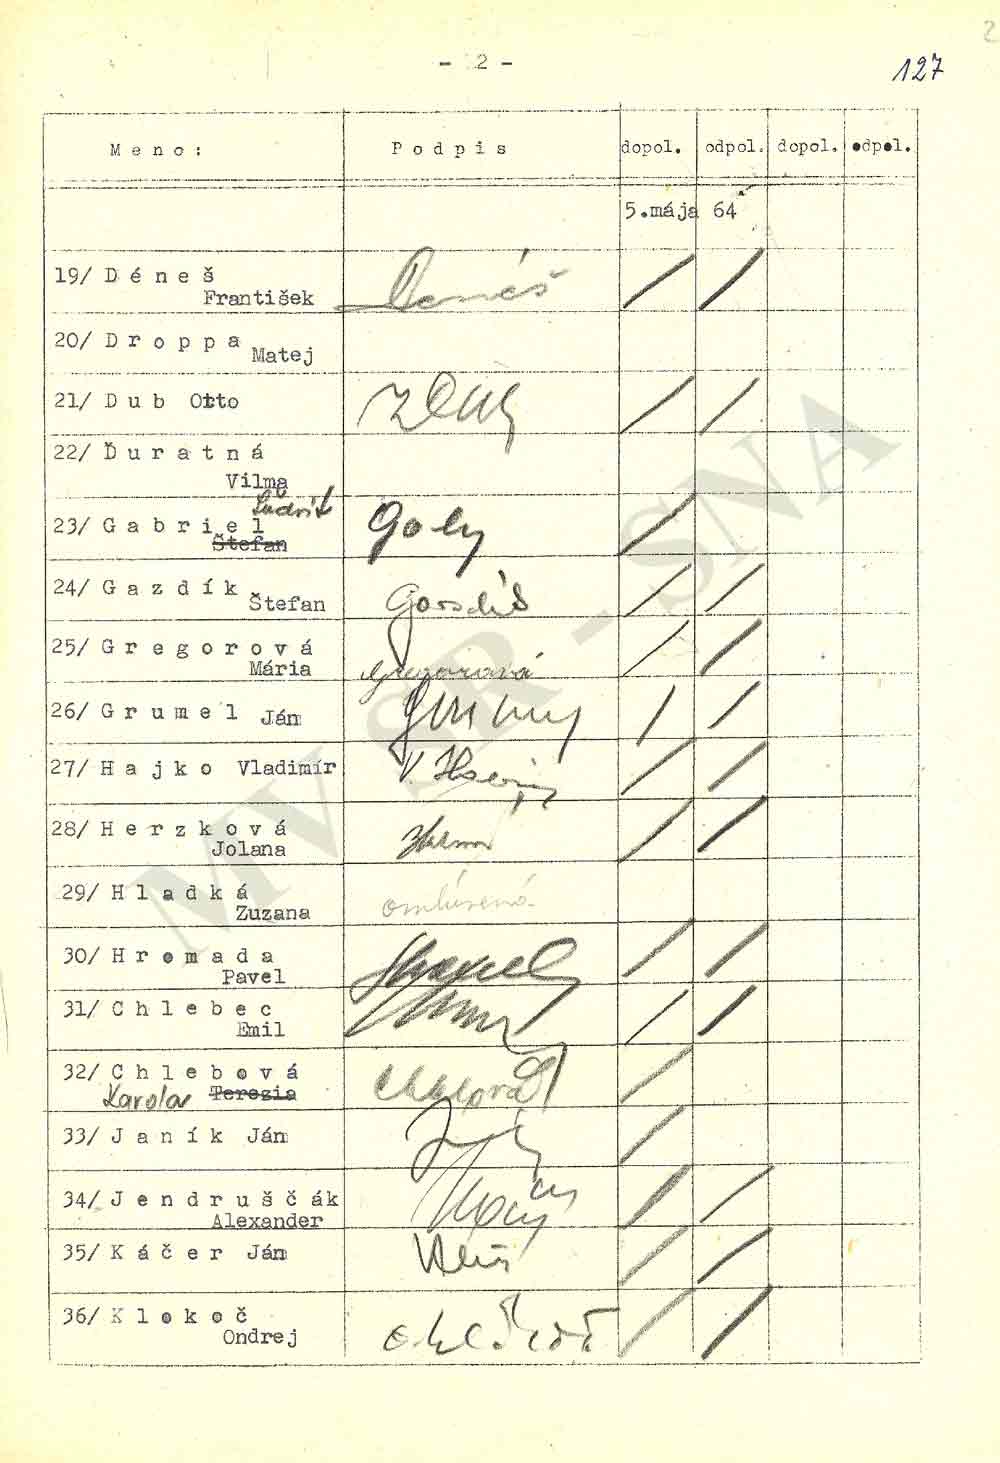 2
- 2 -
127
Meno: Podpis dopol. odpol. dopol. odpol.
5.mája 64
19/ Déneš Denéš
František
20/ Droppa
Matej
21/ Dub Otto
22/ Ďuratná
Vilma
Ludvik
23/ Gabriel
Štefan
24/ Gazdík
Štefan
25/ Gregorová
Mária Gregorová
26/ Grumel Ján
27/ Hajko Vladimír
28/ Herzková
Jolana
29/ Hladká
Zuzana omlúvená
30/ Hromada
Pavel
31/ Chlebec
Emil
32/ Chlebová
Karola Terezia
33/ Janík Ján
34/ Jendruščák
Alexander
35/ Káčer Ján
36/ Klokoč
Ondrej
MV SR - SNA